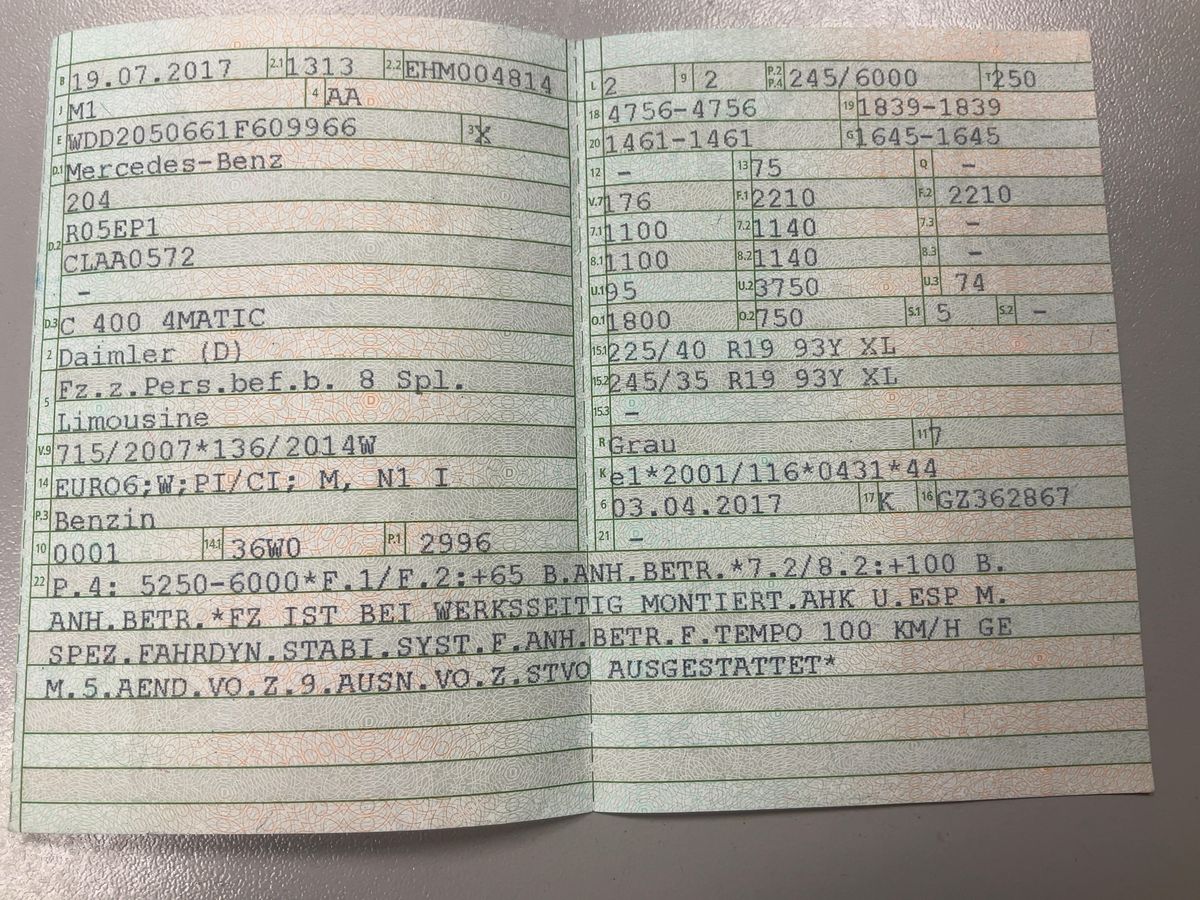 B 19.07.2017 2.1 1313 2.2 EHM004814
J M1 4 AA
E WDD2050661F609966 3 X
D.1 Mercedes-Benz
204
D.2 R05EP1
CLAA0572
–
D.3 C 400 4MATIC
2 Daimler (D)
5 Fz.z.Pers.bef.b. 8 Spl.
Limousine
V.9 715/2007*136/2014W
14 EURO6;W;PI/CI; M, N1 I
P.3 Benzin
10 0001 14.1 36W0 P.1 2996
L 2 9 2 P.2 P.4 245/6000 T 250
18 4756-4756 19 1839-1839
20 1461-1461 G 1645-1645
12 – 13 75 Q –
V.7 176 F.1 2210 F.2 2210
7.1 1100 7.2 1140 7.3 –
8.1 1100 8.2 1140 8.3 –
U.1 95 U.2 3750 U.3 74
O.1 1800 O.2 750 S.1 5 S.2 –
15.1 225/40 R19 93Y XL
15.2 245/35 R19 93Y XL
15.3 –
R Grau 11 7
K e1*2001/116*0431*44
6 03.04.2017 17 K 16 GZ362867
21 –
22 P.4: 5250-6000*F.1/F.2:+65 B.ANH.BETR.*7.2/8.2:+100 B.
ANH.BETR.*FZ IST BEI WERKSSEITIG MONTIERT.AHK U.ESP M.
SPEZ.FAHRDYN.STABI.SYST.F.ANH.BETR.F.TEMPO 100 KM/H GE
M.5.AEND.VO.Z.9.AUSN.VO.Z.STVO AUSGESTATTET*